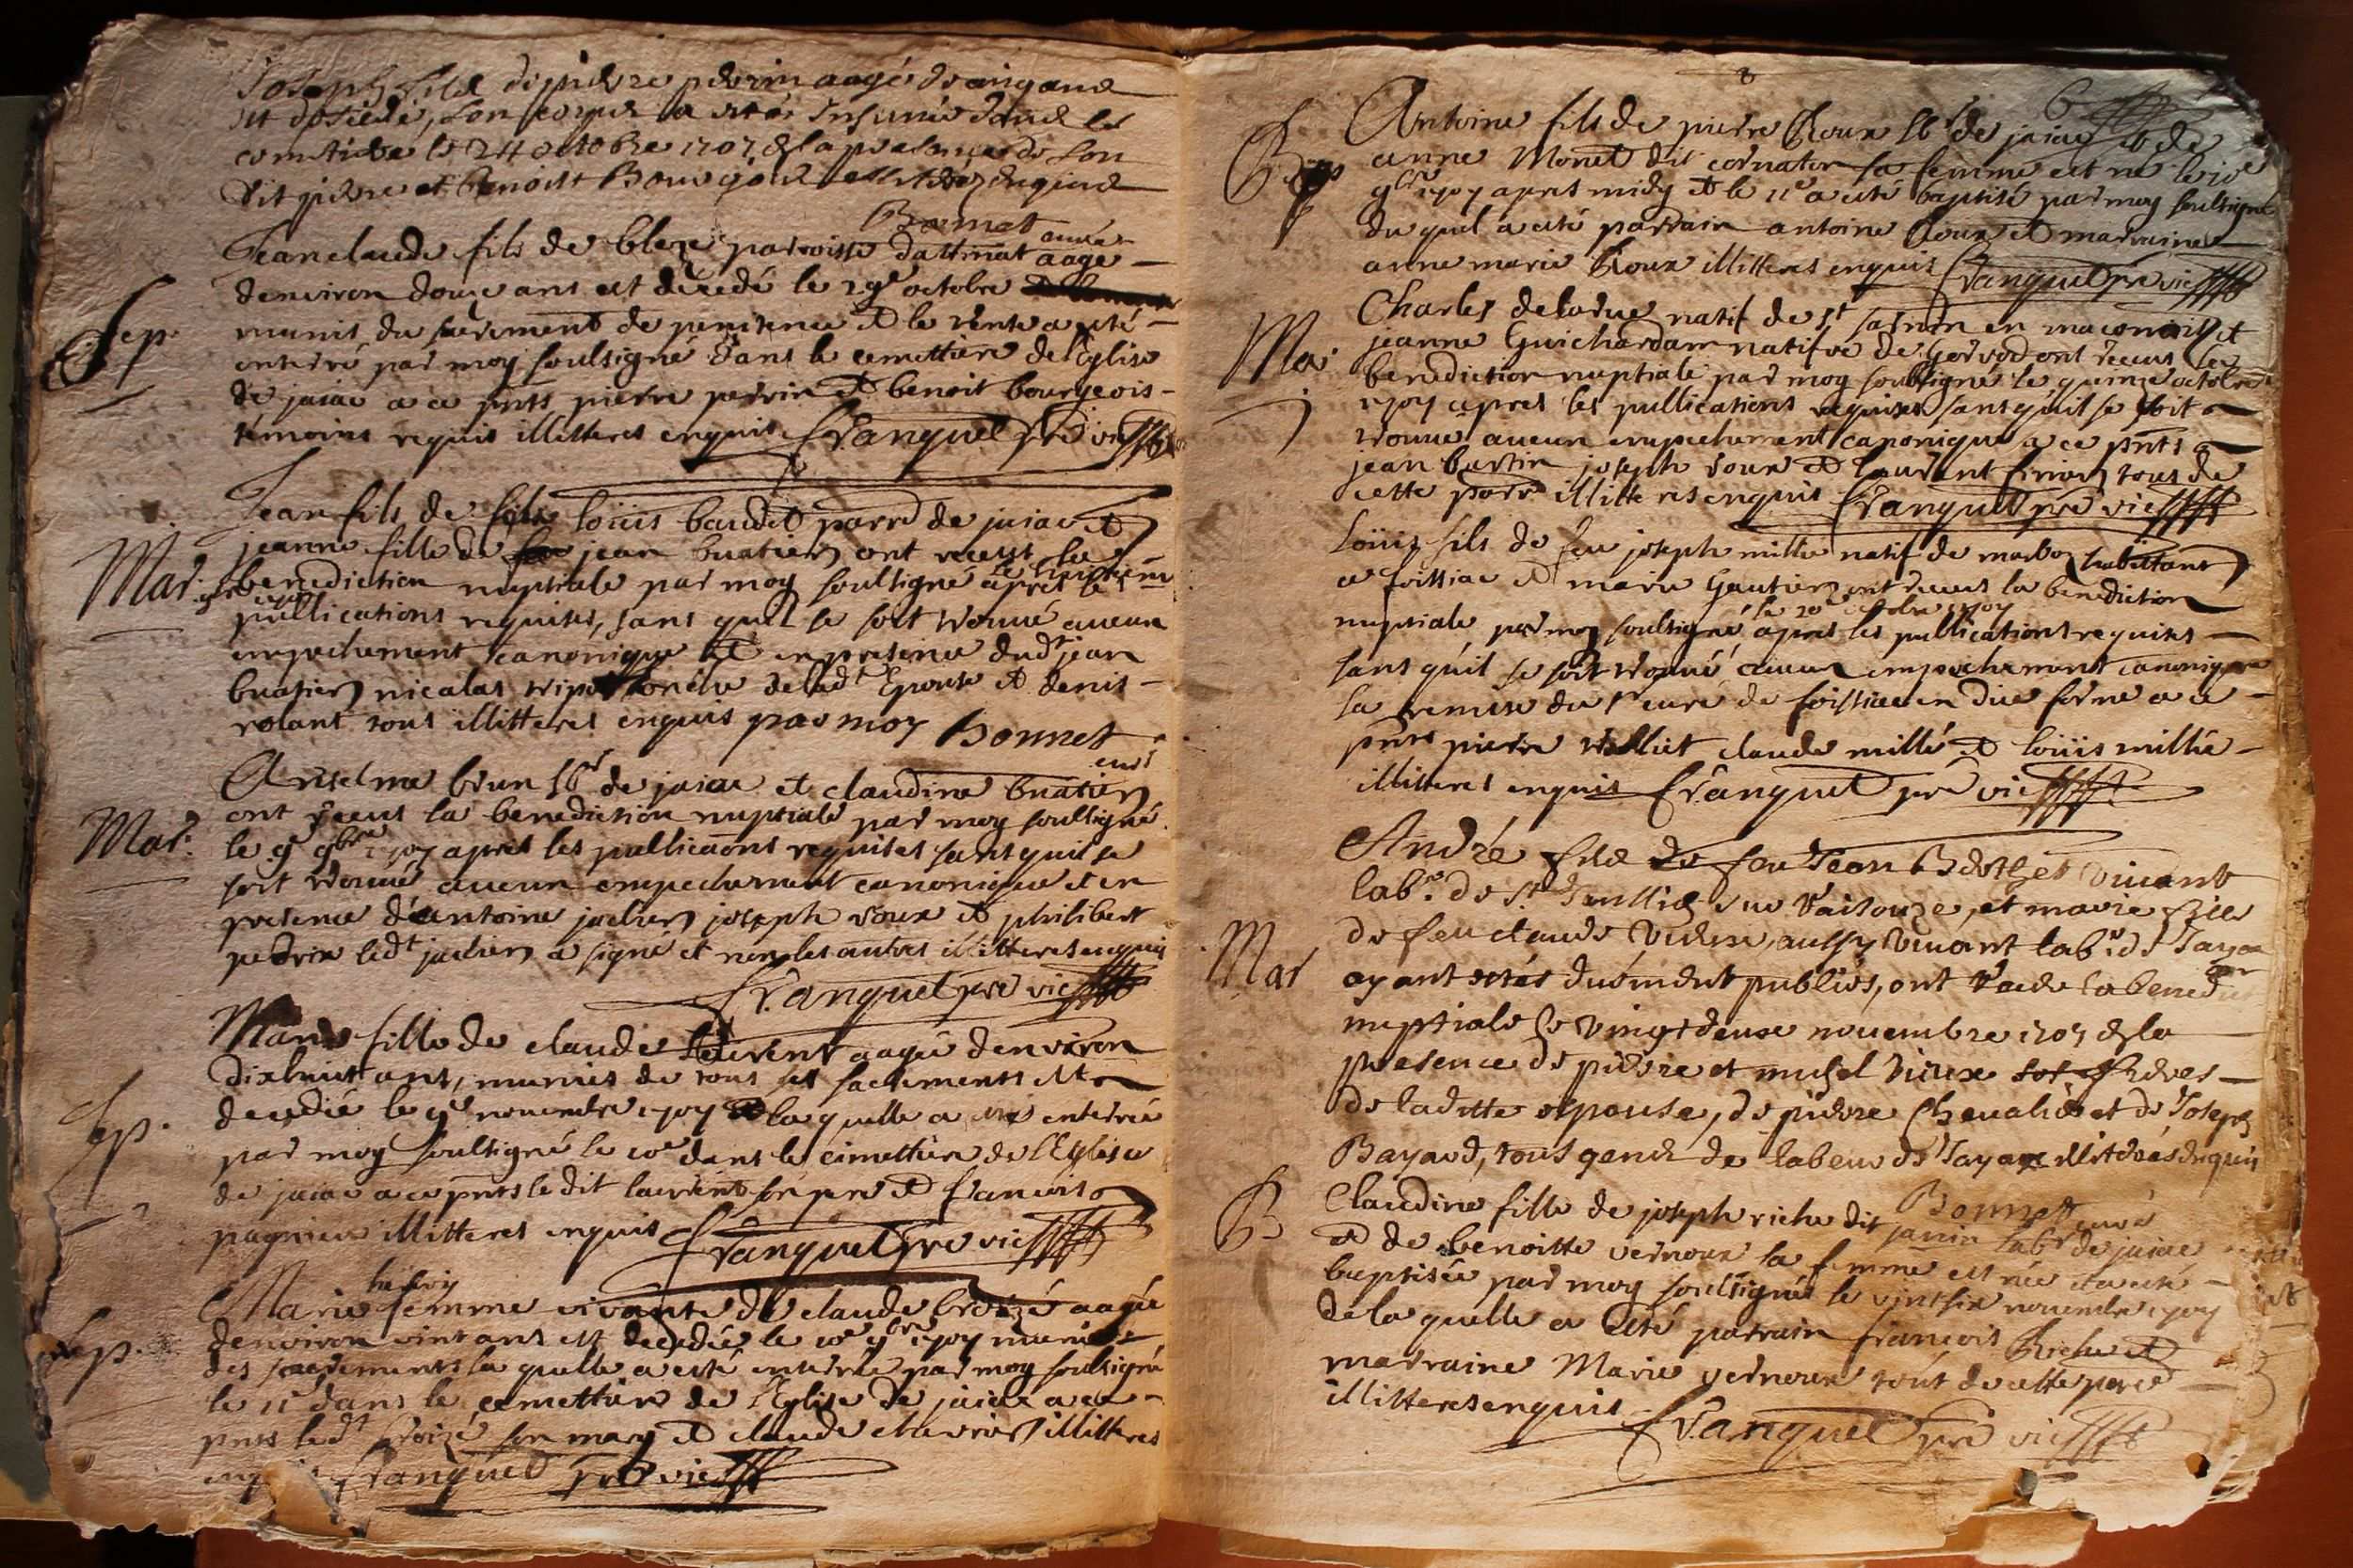 Joseph fils de pierre perrin aagé de cinq ans
est décédé, son corpus a esté inhumé dans le
cimetiere le 24 octobre 1707 en la presence de son
dit pierre et benoist Bourgeois illiterez enquis
Bonnet curé
Jean claude fils de bleze paroisse dattinat aage
denviron douze ans est decedé le 29e octobre
munit du sacrement de penitence et le trente a esté
enterré par moy soulsigné dans le cemettiere de l'Eglise
de jaiac a ce pnts pierre perrin et benoit bourgeois
témoins requis illitteres enquis franquet pre vic
Sep.
Jean fils de louis baudet parre de jaiac et
jeanne fille de jean buatier ont receut la
benediction nuptiale par moy soulsigné apres les
Mar.
publications requises, sans quil se soit trouvé aucun
empechement canonique et en presence dudt jean
buatier nicalas de ladt Epouse et denis
rolant tous illitteres enquis par moy Bonnet
curé
Anselme brun lbr de jaiac et claudine buatier
ont receus la benediction nuptiale par moy soulsigné
Mar.
le 9 9bre 1707 apres les pullicaons requises sans quil se
soit trouvé aucun empechement canonique et en
presence d'antoine joseph roux et philibert
perrin ledt a signé et non les autres illitteres enquis
franquet pre vic
Marie fille de claude laurent aagée denviron
dixhuit ans, munies de tous ses sacrements est
decedée le 9e novembre 1707 et la quelle a esté enterrée
Sep.
par moy soulsigné le 10e dans le cimettiere de l'Eglise
de jaiac a ce pnts le dit laurent son pere et francois
pagnieu illitteres enquis franquet pre vic
henry
Marie femme vivante de claude broizé aagée
denviron vint ans est decedée le 10e 9bre 1707 munie
Sep.
des sacrements la quelle a esté enterrée par moy soulsigné
le 11e dans le cemettiere de l'Eglise de jaiac a ce
pnts ledt broizé son mary et claude chevrier illitteres
franquet pre vic
8
6
Antoine fils de pierre Roux lbr de jaiac et de
anne Monet dit cornaton sa femme est né le 10e
Bap
9bre 1707 apres midy et le 11e a esté baptisé par moy soulsigné
du quel a esté parrain antoine Roux et marraine
anne marie Roux illitteres enquis franquet pre vic
Charles delarue natif de st en maconois et
Mar.
jeanne Guichardan native de ont receus les
benediction nuptiale par moy soulsigné le octobre
1707 apres les pullications requises sans quil se soit
trouvé aucun empechement canonique a ce pnts
jean burtin joseph roux et laurent tous de
cette parr illitteres enquis franquet pre vic
Loüis fils de feu joseph mille natif de marboz habitant
a foissiac et marie Gautier ont receus la benediction
le 20e octobre 1707
nuptiale par moy soulsigné apres les publications requises
sans quil se soit trouvé aucun empechement canonique
la remise du sr curé de foissiac en due forme a ce
pnts pierre claude millé et loüis millé
illitteres enquis franquet pre vic
André fils de feu Jean Berthet vivant
labr. de st et marie fille
de feu claude vieux, aussy vivant labr. de Jayac
Mar
ayant estés duement publiés, ont receu la bened
nuptiale le vingt deux novembre 1707 en la
presence de pierre et michel vieux freres
de laditte espouse, de pierre Chevalier et de Joseph
Bayard, tous gens de labeur de Jayac illiterés enquis
Bonnet curé
B
Claudine fille de joseph riche dit janin labr de jaiac
et de benoitte vernoux sa femme est née et a esté
baptisée par moy soulsigné le vintsix novembre 1707
de la quelle a esté parrain francois Riche et
marraine Marie vernoux tout de cette parre
illitteres enquis
franquet pre vic